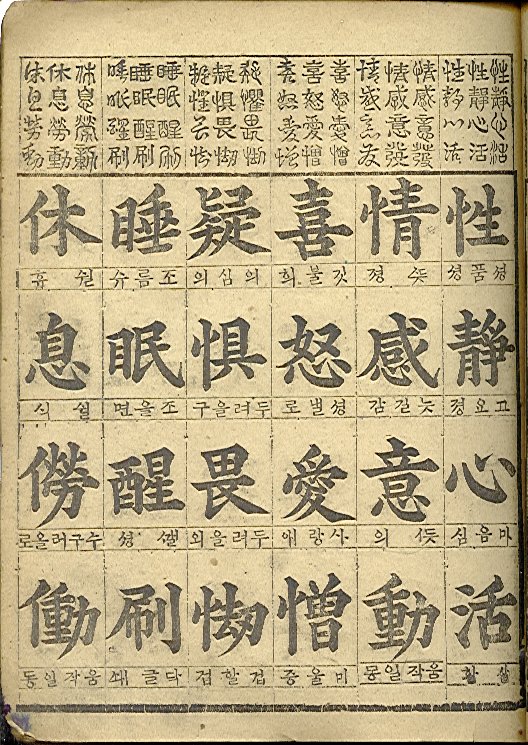 性靜心活
性靜心活
性靜心活
情感意發
情感意發
喜怒愛憎
喜怒愛憎
喜怒愛憎
疑懼畏㤼
疑惧畏㤼
睡眠醒刷
睡眠醒刷
睡眠醒刷
休息勞動
休息勞動
休息勞動
性
셩품셩
靜
고요졍
心
마음심
活
살활
情
ᄯᅳᆺ졍
感
늣길감
意
ᄯᅳᆺ의
動
움작일동
喜
깃불희
怒
셩낼로
愛
사랑애
憎
미울증
疑
의심의
惧
두려울구
畏
두려울외
㤼
겁할겁
睡
조름슈
眠
조을면
醒
ᄭᅢᆯ셩
刷
닥글쇄
休
쉴휴
息
쉴식
僗
수구러올로
働
움작일동